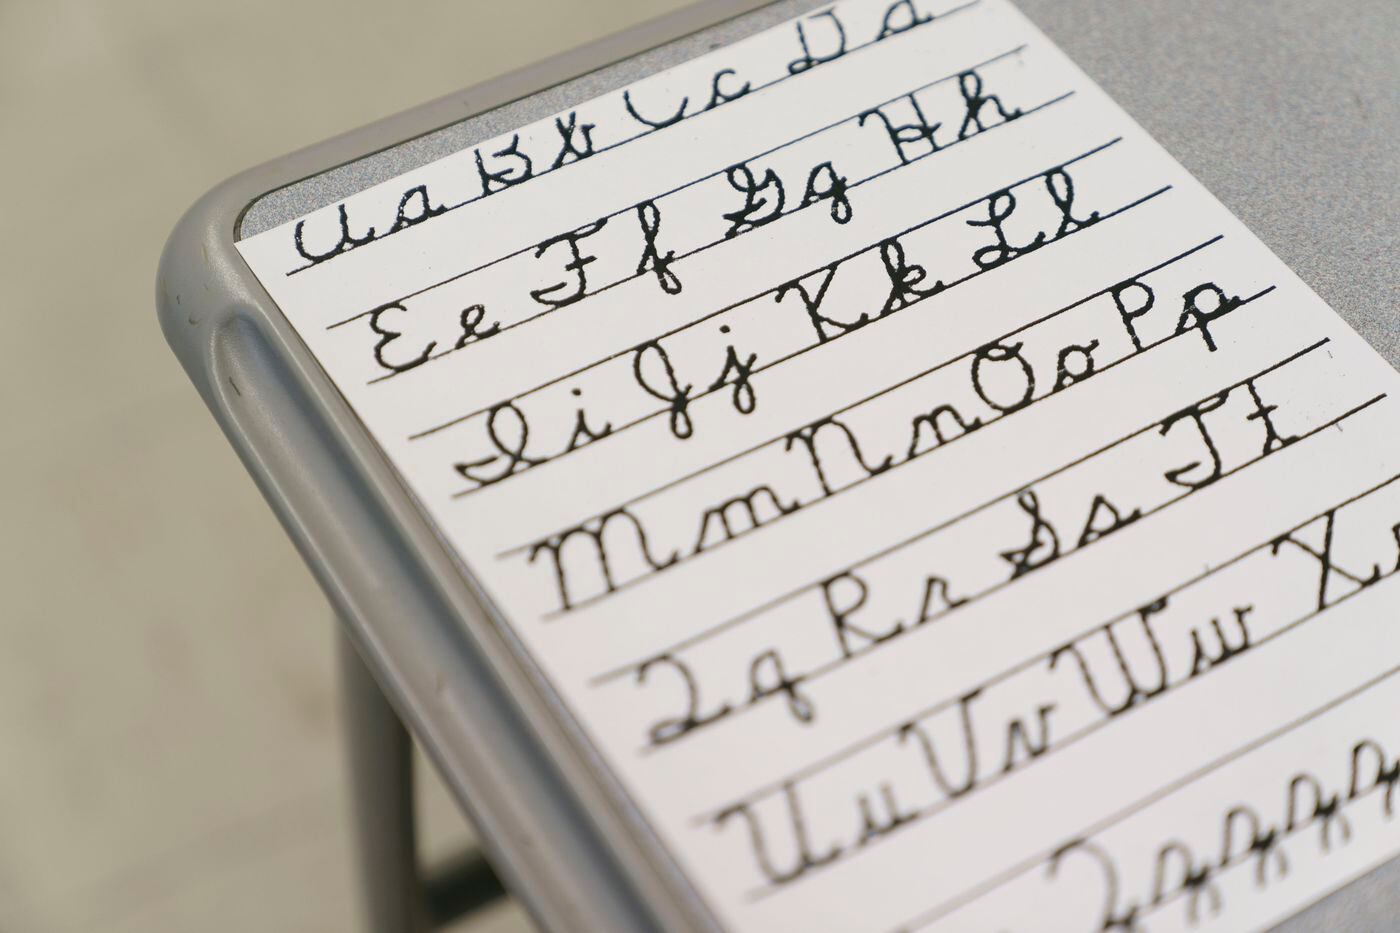 a B b C c D d
E e F f G g H h
I i J j K k L l
M m N n O o P p
Q q R r S s T t
U u V v W w X